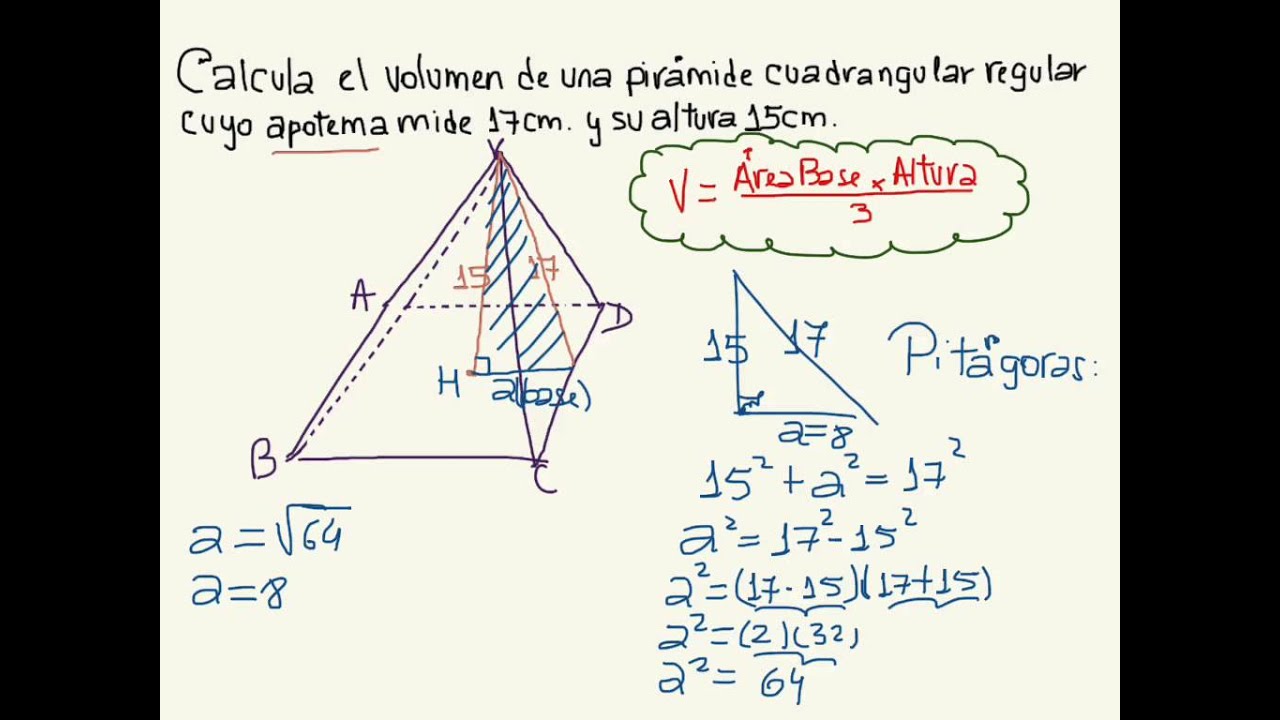 Calcula el volumen de una pirámide cuadrangular regular
cuyo apotema mide 17cm. y su altura 15cm.
V = Área Base x Altura
3
V
15
17
A
D
H
a(base)
B
C
15
17
a=8
Pitágoras:
15² + a² = 17²
a² = 17² - 15²
a² = (17 - 15)(17+15)
a² = (2)(32)
a² = 64
a = √64
a = 8